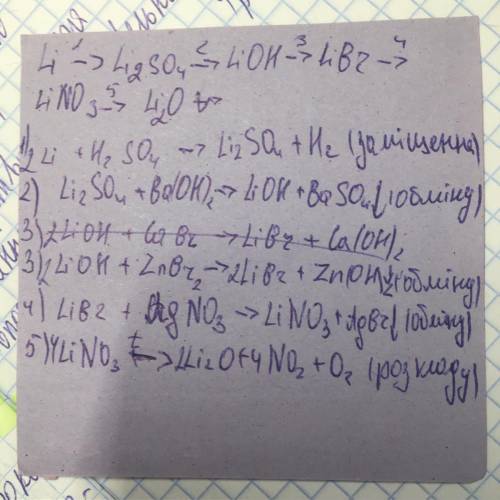 Li 1→ Li2SO4 2→ LiOH 3→ LiBr 4→
LiNO3 5→ Li2O
1) 2Li + H2SO4 → Li2SO4 + H2 (заміщення)
2) Li2SO4 + Ba(OH)2 → LiOH + BaSO4↓ (обміну)
3) 2LiOH + CaBr → LiBr + Ca(OH)2
3) 2LiOH + ZnBr2 → 2LiBr + Zn(OH)2↓ (обміну)
4) LiBr + AgNO3 → LiNO3 + AgBr↓ (обміну)
5) 4LiNO3 t→ 2Li2O + 4NO2 + O2 (розкладу)